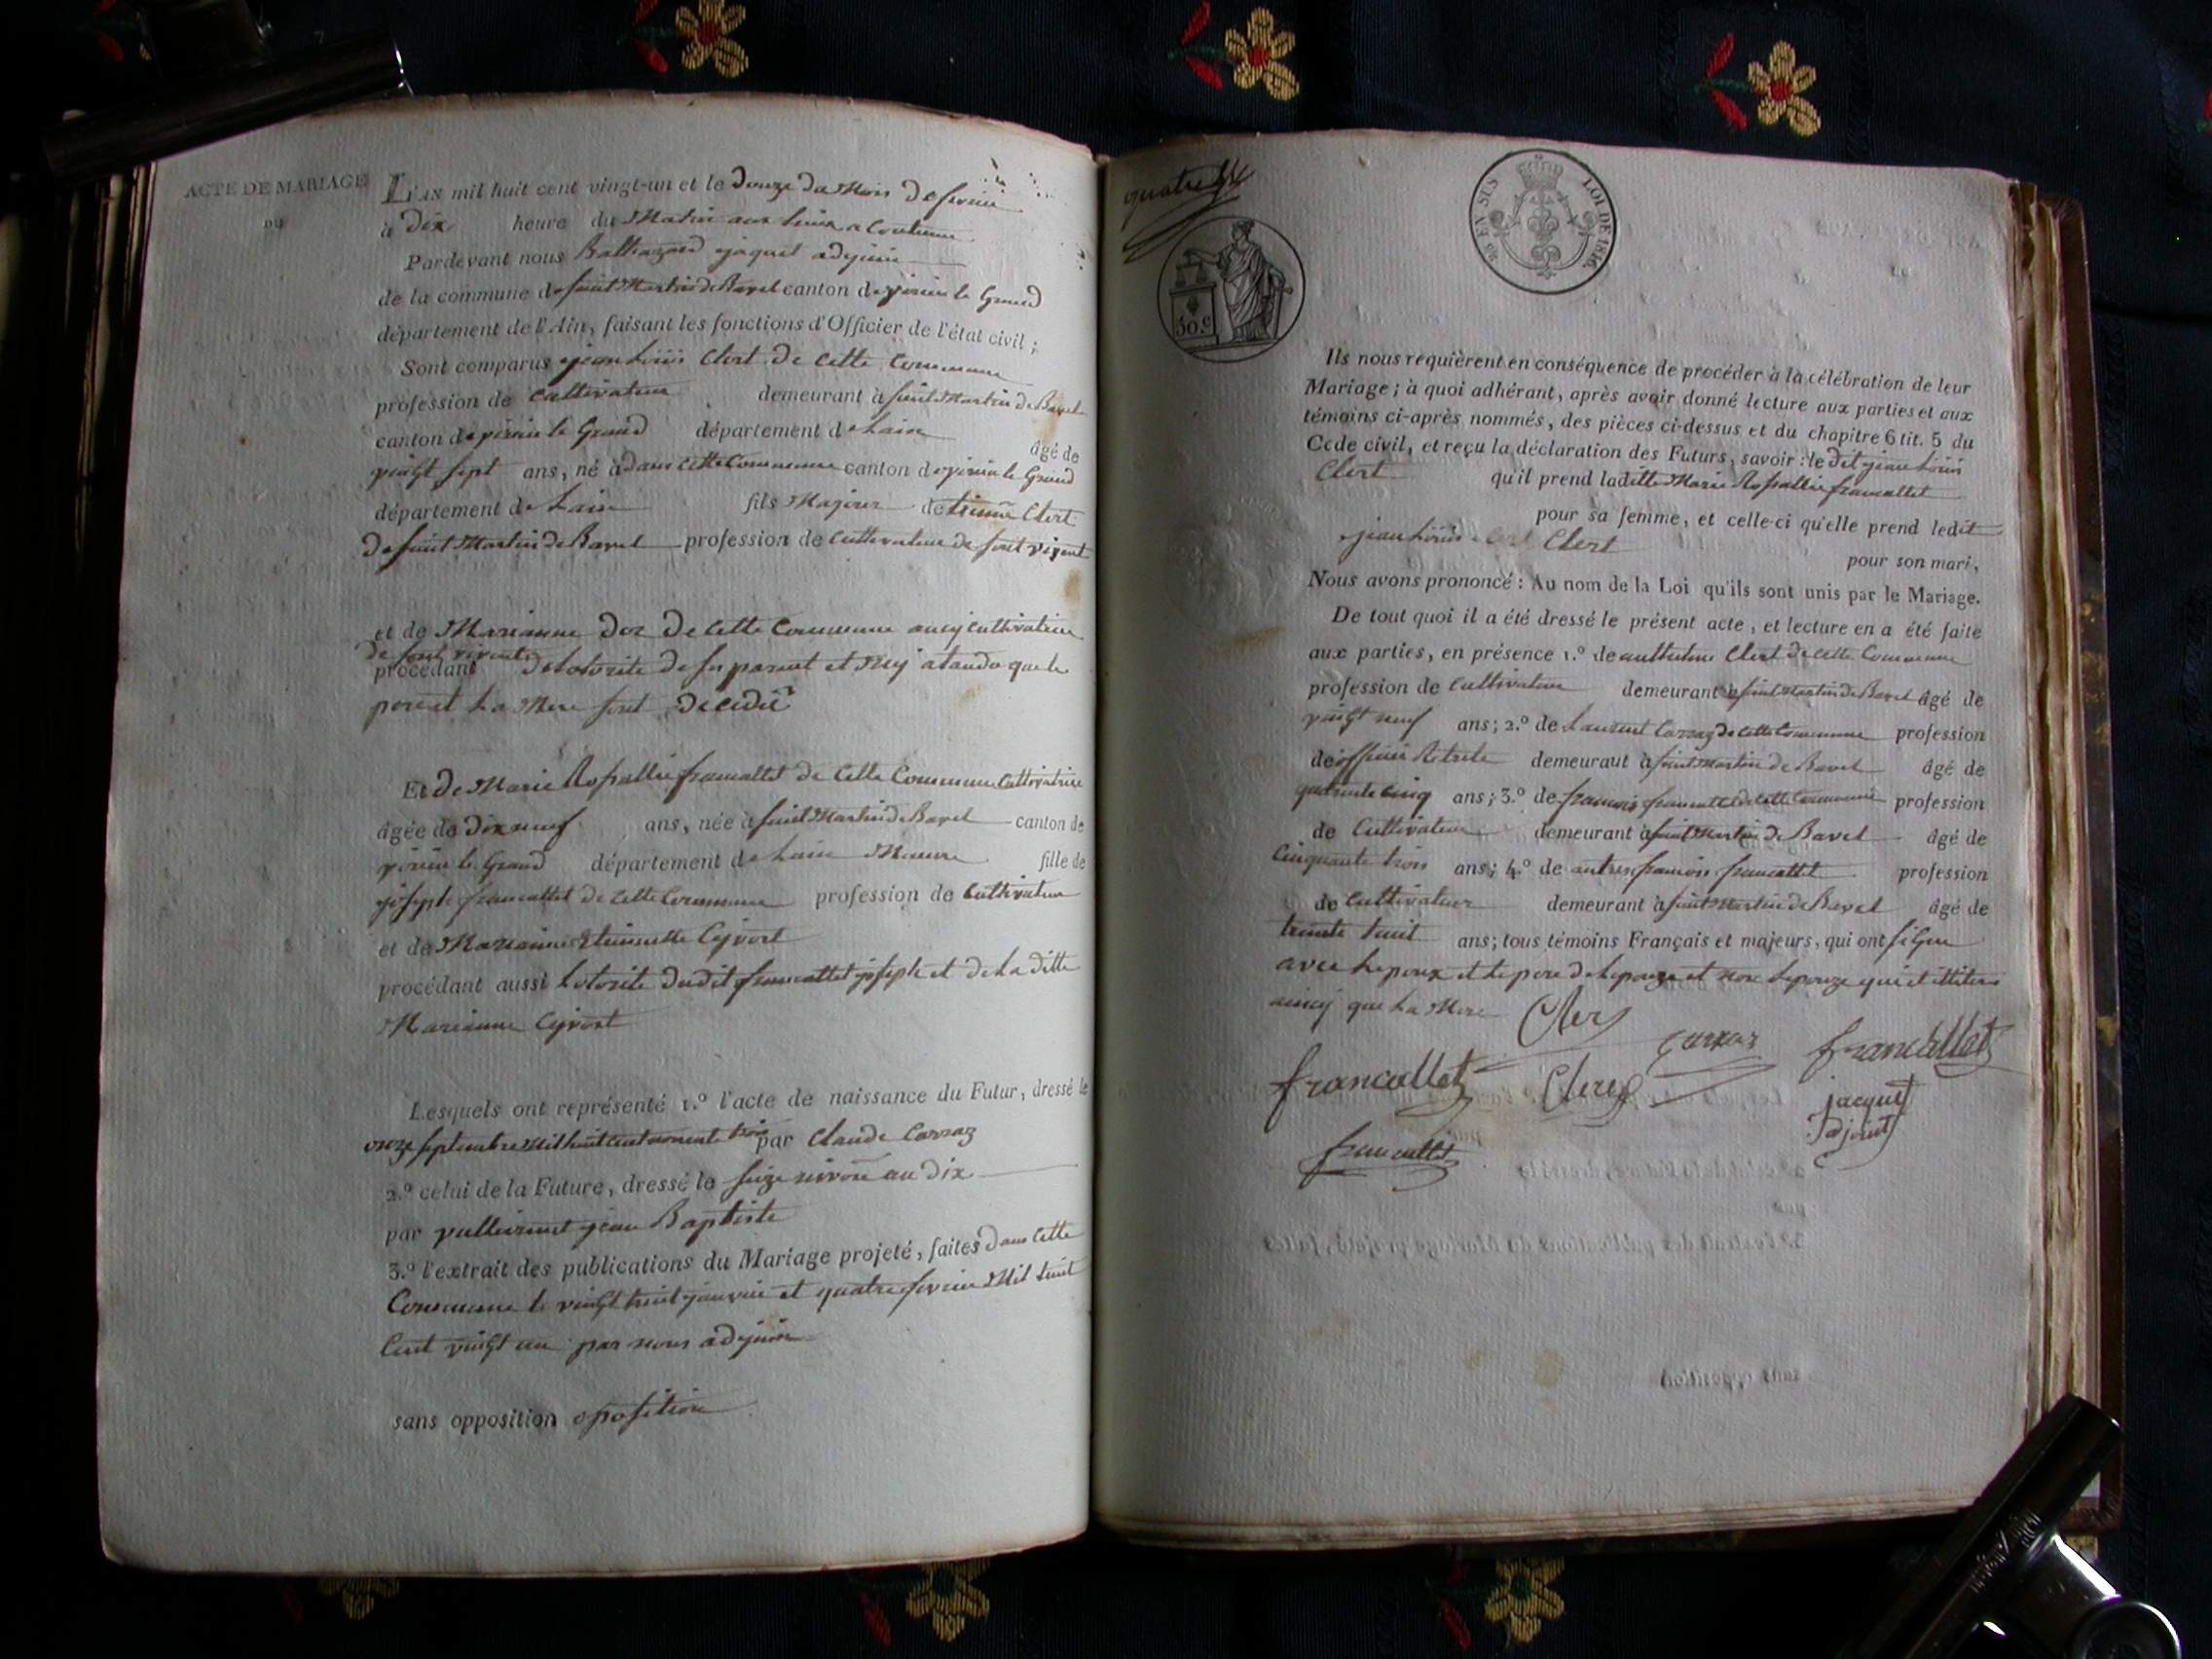 ACTE DE MARIAGE
DU
L'AN mil huit cent vingt-un et le douze du Mois de fevrie
à dix heure du Matin
Pardevant nous Balthazard jaquet adjoin
de la commune de saint Martin de Bavel canton de virieu le Grand
département de l'Ain, faisant les fonctions d'Officier de l'état civil ;
Sont comparus jean Louis Clert de Cette Commune
profession de Cultivateur demeurant à saint Martin de Bavel
canton de virieu le Grand département de Lain âgé de
vingt sept ans, né à dans cette Commune canton de virieu le Grand
département de Lain fils Majeur de Clert
De saint Martin de Bavel profession de Cultivateur de sont vivent
et de Marianne Doz de Cette Commune aucy Cultivatrice
de sont vivente
procédant de lotorite de ses parent et Mej atandu que le
pere et La Mere sont Decedé
Et de Marie Rosallie francallet de Cette Commune Cultivatrice
âgée de dix neuf ans, née à saint Martin de Bavel canton de
virieu le Grand département de Lain Mineure fille de
joseph francallet de Cette Commune profession de Cultivateur
et de Marianne Etiennette Cyvort
procédant aussi Lotorite dudit francallet joseph et De La ditte
Marianne Cyvort
Lesquels ont représenté 1.º l'acte de naissance du Futur, dressé le
onze septembre Mil huit Cent nonente trois par Claude Carraz
2.º celui de la Future, dressé le seize nivose an dix
par jean Baptiste
3.º l'extrait des publications du Mariage projeté, faites Dans Cette
Commune le vingt huit janvier et quatre fevrier Mil huit
Cent vingt un par nous adjoin
sans opposition oposition
quatre
30.C
EN SUS
LOI DE 1816.
Ils nous requièrent en conséquence de procéder à la célébration de leur
Mariage ; à quoi adhérant, après avoir donné lecture aux parties et aux
témoins ci-après nommés, des pièces ci-dessus et du chapitre 6 tit. 5 du
Code civil, et reçu la déclaration des Futurs, savoir : le dit jean Louis
Clert qu'il prend ladite Marie Rosallie francallet
pour sa femme, et celle-ci qu'elle prend ledit
jean Louis Clert
pour son mari,
Nous avons prononcé : Au nom de la Loi qu'ils sont unis par le Mariage.
De tout quoi il a été dressé le présent acte, et lecture en a été faite
aux parties, en présence 1.º de anthelme Clert de Cette Commune
profession de Cultivateur demeurant à saint Martin de Bavel âgé de
vingt neuf ans ; 2.º de Laurent Carraz de Cette Commune profession
de officier Retrete demeurant à saint Martin de Bavel âgé de
quarente cinq ans ; 3.º de francois francallet de Cette Commune profession
de Cultivateur demeurant à saint Martin de Bavel âgé de
Cinquante trois ans ; 4.º de autre francois francallet profession
de Cultivateur demeurant à saint Martin de Bavel âgé de
trente huit ans ; tous témoins Français et majeurs, qui ont signe
avec Lepoux et Le pere de Lepouze et non Lepouze qui et illitere
aincy que La Mere
Clert
carraz
francallet
francallet
Clert
jacquet
adjoint
francallet